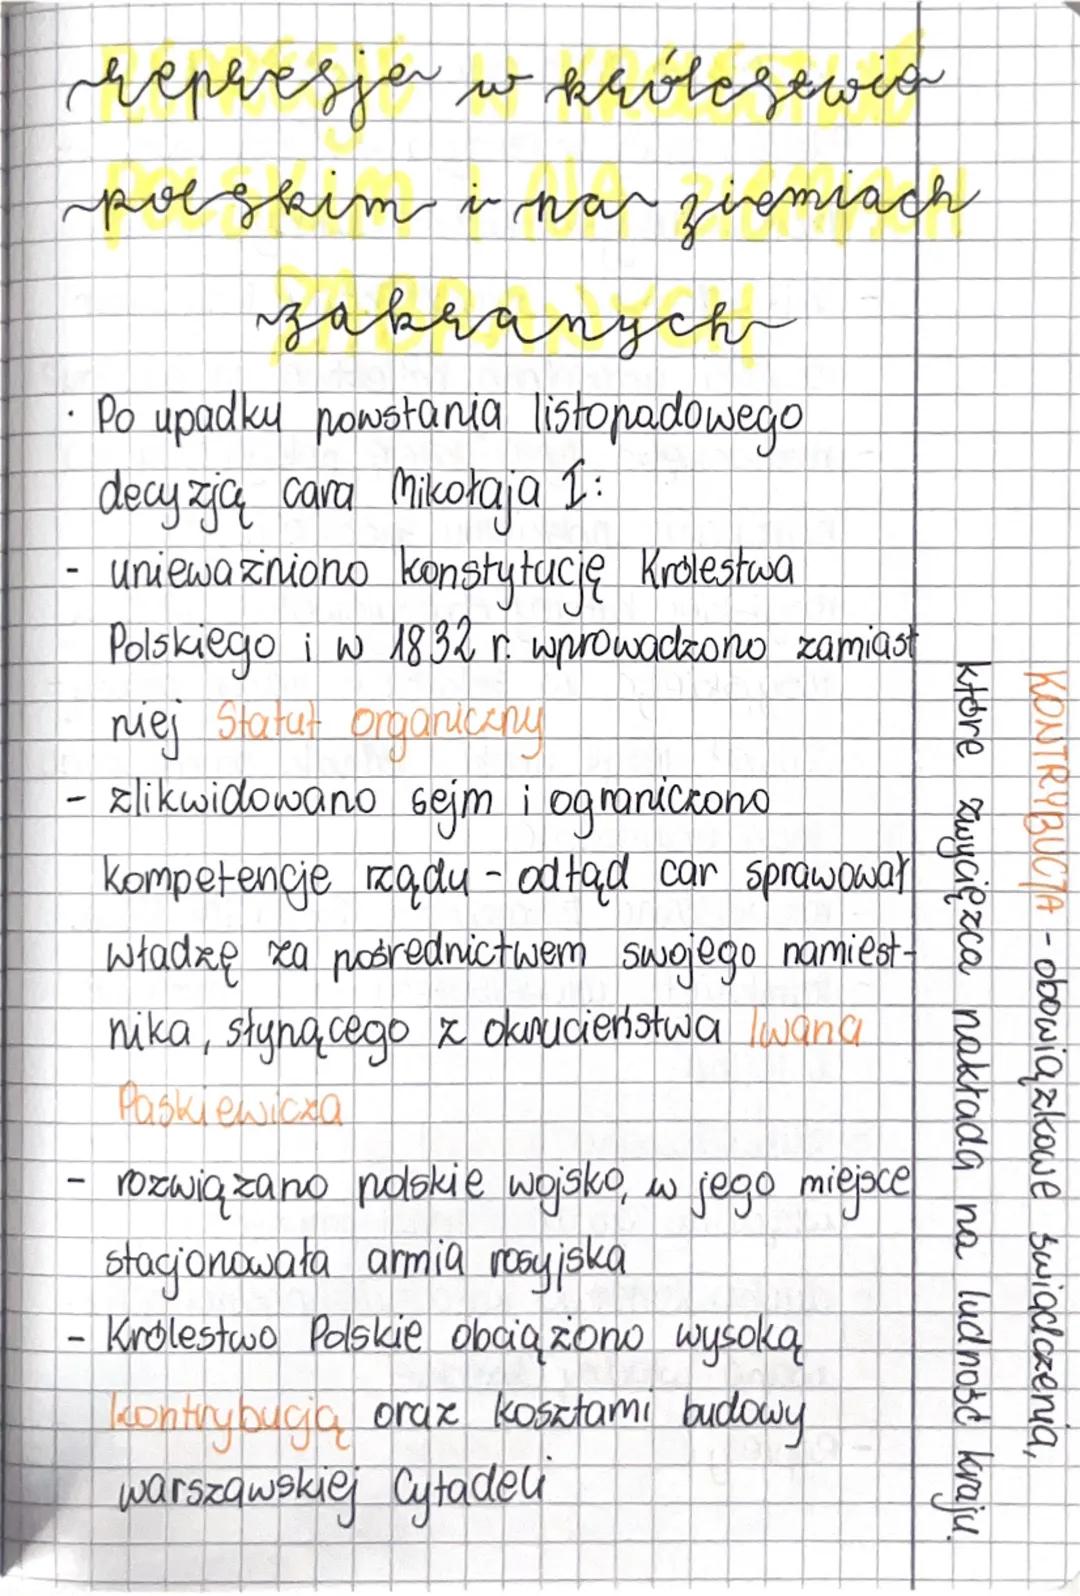 represje w królestwie
polskim i na ziemiach
zabranych
· Po upadku powstania listopadowego
decyzją cara Mikołaja I:
- unieważniono konstytucję Królestwa
Polskiego i w 1832 r. wprowadzono zamiast
niej Statut organiczny
- zlikwidowano sejm i ograniczono
kompetencje rządu - odtąd car sprawował
władzę za pośrednictwem swojego namiest-
nika, słynącego z okrucieństwa Iwana
Paskiewicza
- rozwiązano polskie wojsko, w jego miejsce
stacjonowała armia rosyjska
- Królestwo Polskie obciążono wysoką
kontrybucją oraz kosztami budowy
warszawskiej Cytadeli
KONTRYBUCJA - obowiązkowe świadczenia,
które zwycięzca nakłada na ludność kraju.